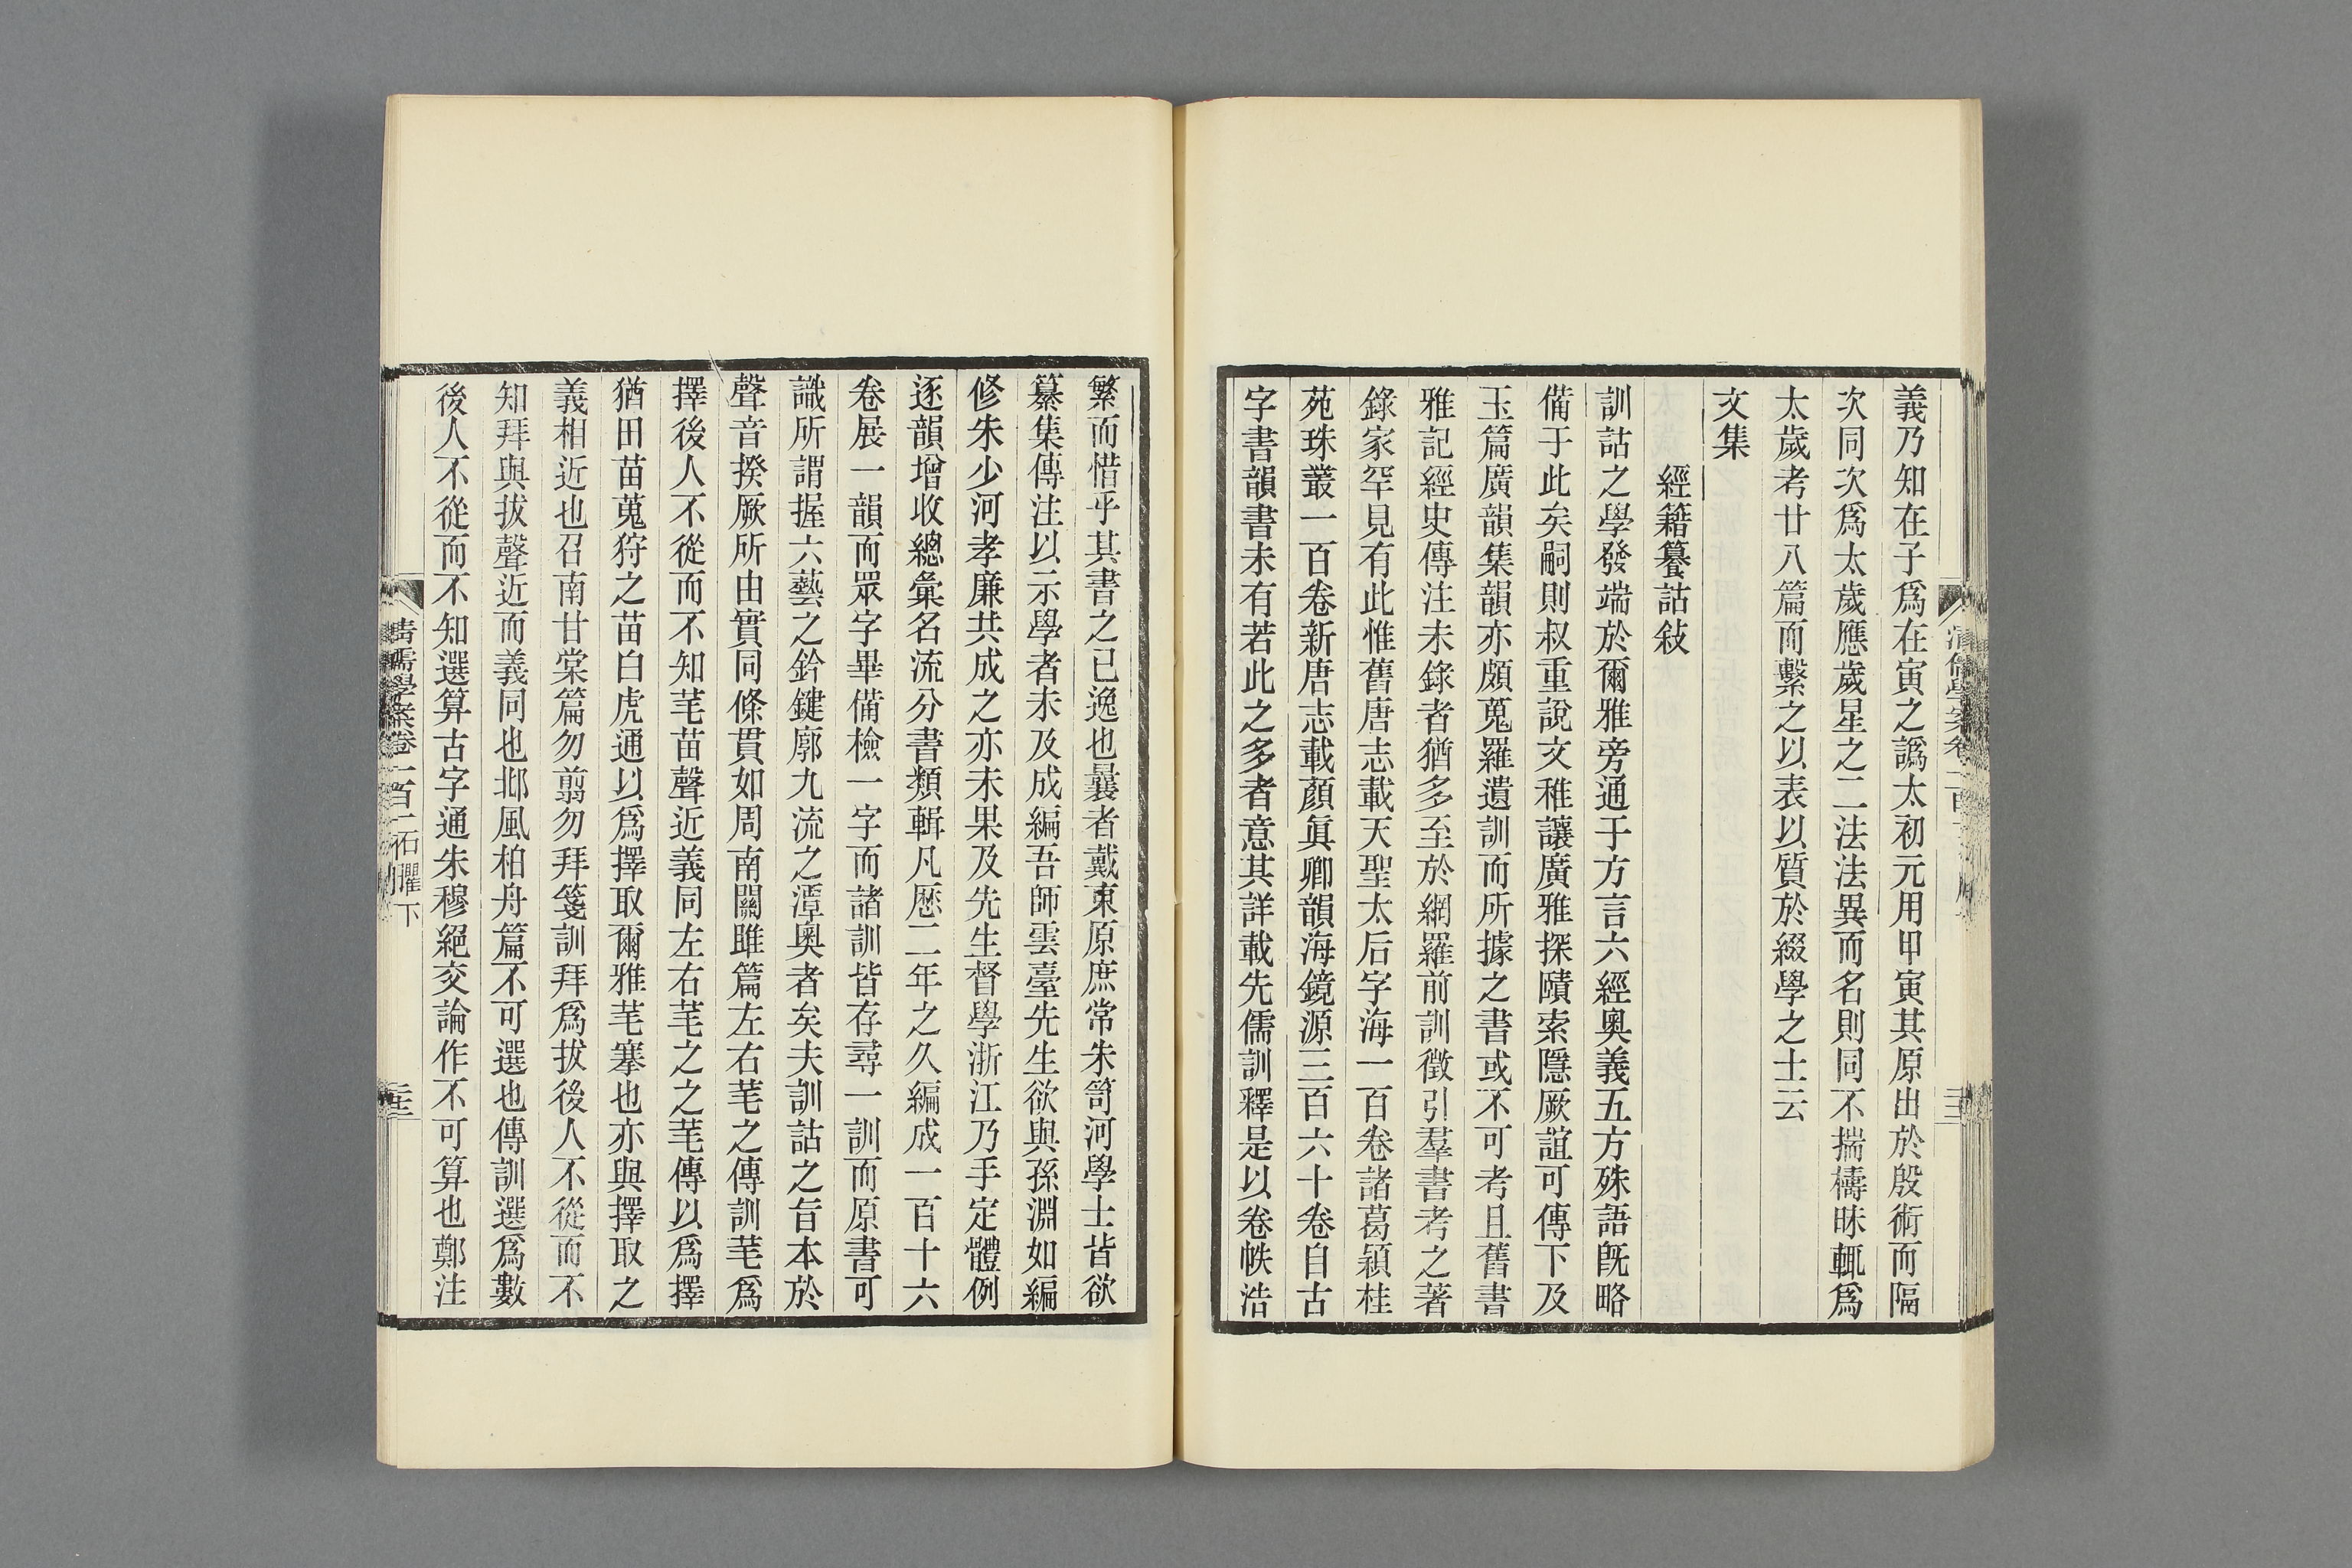 義乃知在子爲在寅之譌太初元用甲寅其原出於殷術而隔
次同次爲太歲應歲星之二法法異而名則同不揣檮昧輒爲
太歲考廿八篇而繫之以表以質於綴學之士云
文集
經籍籑詁敍
訓詁之學發端於爾雅旁通于方言六經奧義五方殊語旣略
備于此矣嗣則叔重說文稚讓廣雅探賾索隱厥誼可傳下及
玉篇廣韻集韻亦頗蒐羅遺訓而所據之書或不可考且舊書
雅記經史傳注未錄者猶多至於網羅前訓徵引羣書考之著
錄家罕見有此惟舊唐志載天聖太后字海一百卷諸葛穎桂
苑珠叢一百卷新唐志載顏眞卿韻海鏡源三百六十卷自古
字書韻書未有若此之多者意其詳載先儒訓釋是以卷帙浩
繁而惜乎其書之已逸也曩者戴東原庶常朱笥河學士皆欲
纂集傳注以示學者未及成編吾師雲臺先生欲與孫淵如編
修朱少河孝廉共成之亦未果及先生督學浙江乃手定體例
逐韻增收總彙名流分書類輯凡厯二年之久編成一百十六
卷展一韻而眾字畢備檢一字而諸訓皆存尋一訓而原書可
識所謂握六藝之鈐鍵廓九流之潭奧者矣夫訓詁之旨本於
聲音揆厥所由實同條貫如周南關雎篇左右芼之傳訓芼爲
擇後人不從而不知芼苗聲近義同左右芼之之芼傳以爲擇
猶田苗蒐狩之苗白虎通以爲擇取爾雅芼搴也亦與擇取之
義相近也召南甘棠篇勿翦勿拜箋訓拜爲拔後人不從而不
知拜與拔聲近而義同也邶風柏舟篇不可選也傳訓選爲數
後人不從而不知選算古字通朱穆絕交論作不可算也鄭注
清儒學案卷一百一 石臞下